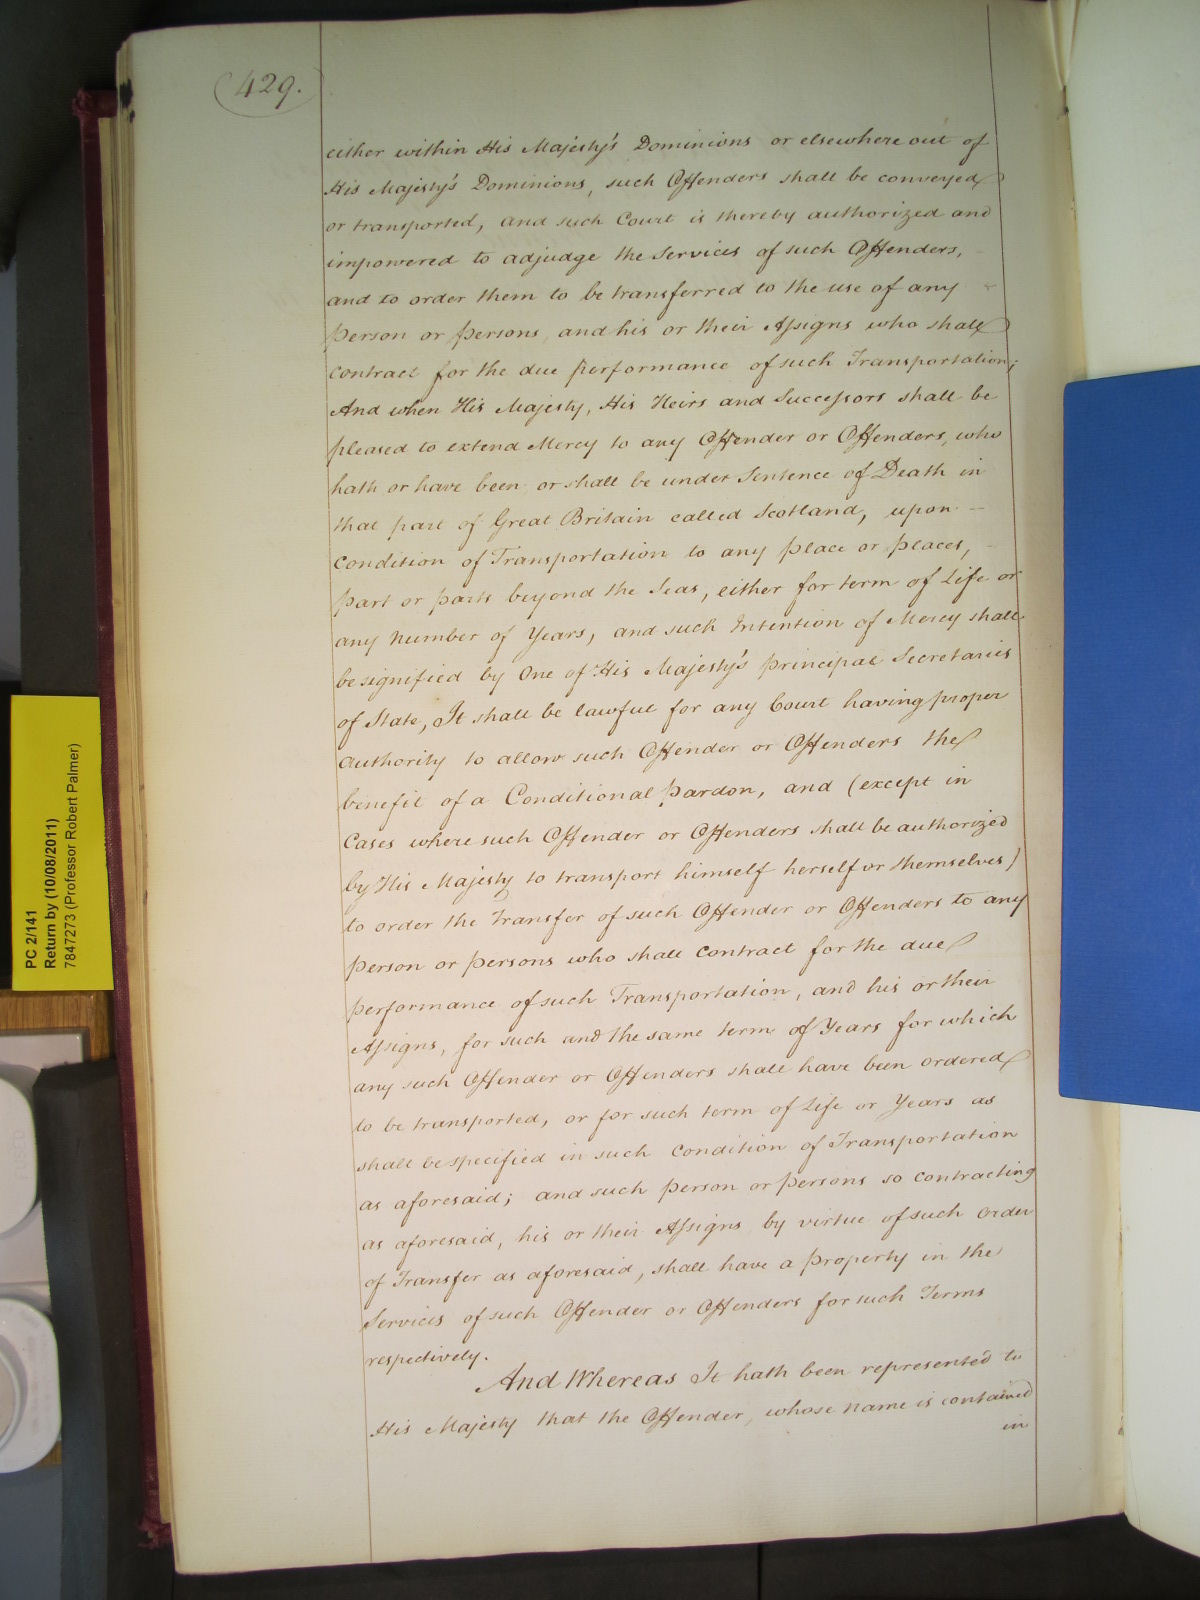 429.
either within His Majesty's Dominions or elsewhere out of
His Majesty's Dominions, such Offenders shall be conveyed
or transported, and such Court is thereby authorized and
impowered to adjudge the Services of such Offenders,
and to order them to be transferred to the use of any
Person or Persons, and his or their Assigns who shall
contract for the due performance of such Transportation;
And when His Majesty, His Heirs and Successors shall be
pleased to extend Mercy to any Offender or Offenders, who
hath or have been or shall be under Sentence of Death in
that part of Great Britain called Scotland, upon
condition of Transportation to any place or places,
part or parts beyond the Seas, either for term of Life or
any number of Years, and such Intention of Mercy shall
be signified by One of His Majesty's principal Secretaries
of State, It shall be lawful for any Court having proper
authority to allow such Offender or Offenders the
benefit of a Conditional Pardon, and (except in
Cases where such Offender or Offenders shall be authorized
by His Majesty to transport himself herself or themselves)
to order the Transfer of such Offender or Offenders to any
person or persons who shall contract for the due
performance of such Transportation, and his or their
Assigns, for such and the same term of Years for which
any such Offender or Offenders shall have been ordered
to be transported, or for such term of Life or Years as
shall be specified in such Condition of Transportation
as aforesaid; and such person or persons so contracting
as aforesaid, his or their Assigns by virtue of such Order
of Transfer as aforesaid, shall have a Property in the
Services of such Offender or Offenders for such Terms
respectively.
And Whereas It hath been represented to
His Majesty that the Offender, whose name is contained
in
PC 2/141
Return by (10/08/2011)
7847273 (Professor Robert Palmer)